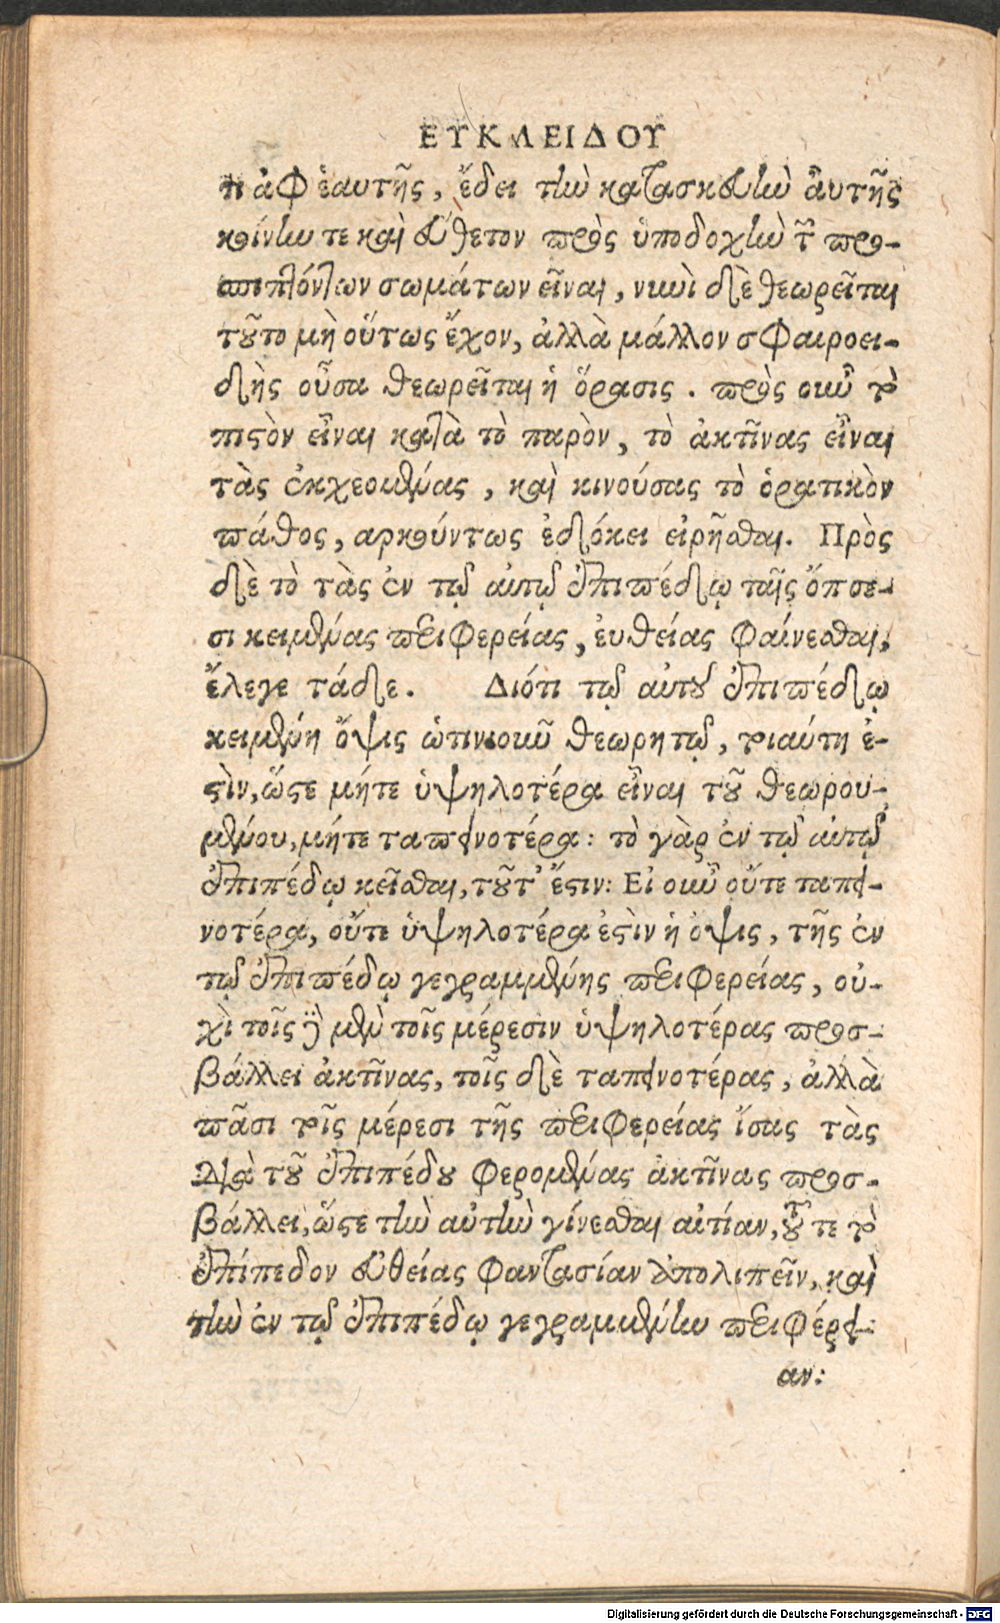 ΕΥΚΛΕΙΔΟΥ
τι ἀφ ἑαυτῆς, ἔδει τὴν κατασκευὴν αὐτῆς
κοίλην τε καὶ εὔθετον πρὸς ὑποδοχὴν τῶν προσ-
πιπτόντων σωμάτων εἶναι, νυνὶ δὲ θεωρεῖται
τοῦτο μὴ οὕτως ἔχον, ἀλλὰ μάλλον σφαιροει-
δὴς οὖσα θεωρεῖται ἡ ὅρασις. πρὸς οὖν τὸ
πιστὸν εἶναι κατὰ τὸ παρὸν, τὸ ἀκτῖνας εἶναι
τὰς ἐκχεομένας, καὶ κινούσας τὸ ὁρατικὸν
πάθος, αρκούντως ἐδόκει εἰρῆσθαι. Πρὸς
δὲ τὸ τὰς ἐν τῷ αὐτῷ ἐπιπέδῳ ταῖς ὄπσε-
σι κειμένας περιφερείας, ἐυθείας φαίνεσθαι,
ἔλεγε τάδε. Διότι τῷ αὐτοῦ ἐπιπέδῳ
κειμένη ὄψις ᾡτινιοῦν θεωρητῷ, τοιαύτη ἐ-
στὶν, ὥστε μήτε ὑψηλοτέρα εἶναι τοῦ θεωρου-
μένου, μήτε ταπεινοτέρα: τὸ γὰρ ἐν τῷ αὐτῷ
ἐπιπέδῳ κεῖσθαι, τοῦτ' ἔστιν: Εἰ οὖν οὔτε ταπει-
νοτέρα, οὔτε ὑψηλοτέρα ἐστὶν ἡ ὄψις, τῆς ἐν
τῷ ἐπιπέδῳ γεγραμμένης περιφερείας, οὐ-
χὶ τοῖς μὲν τοῖς μέρεσιν ὑψηλοτέρας προσ-
βάλλει ἀκτῖνας, τοῖς δὲ ταπεινοτέρας, ἀλλὰ
πᾶσι τοῖς μέρεσι τῆς περιφερείας ἴσας τὰς
διὰ τοῦ ἐπιπέδου φερομένας ἀκτῖνας προσ-
βάλλει, ὥστε τὴν αὐτὴν γίνεσθαι αἰτίαν, τοῦ τε τὸ
ἐπίπεδον εὐθείας φαντασίαν ἀπολιπεῖν, καὶ
τὴν ἐν τῷ ἐπιπέδῳ γεγραμμένην περιφέρει-
αν:
Digitalisierung gefördert durch die Deutsche Forschungsgemeinschaft - DFG